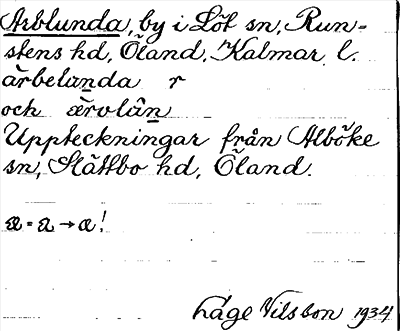 Arblunda, by i Löt sn, Run-
stens hd, Öland, Kalmar l.
ärbelunda r
och ærvlân
Uppteckningar från Alböke
sn, Slättbo hd, Öland.
æ = a → a!
Håge Nilsson 1934